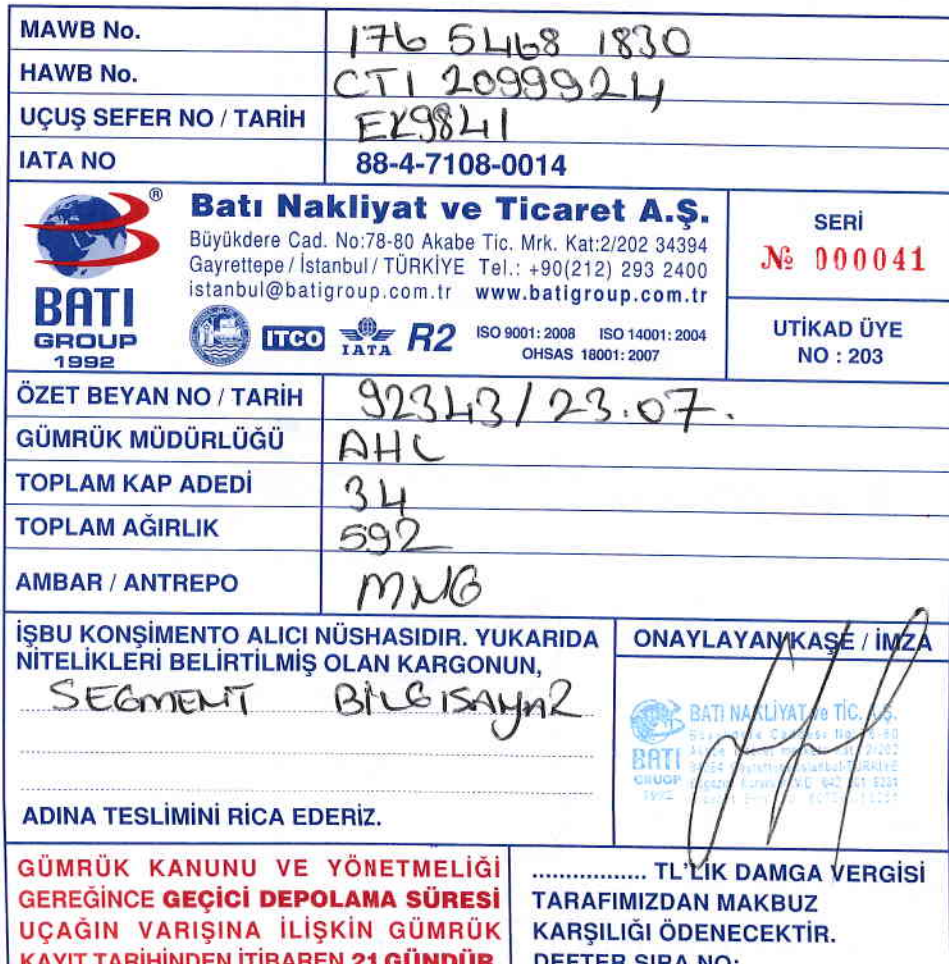 MAWB No. 176 5468 1830
HAWB No. CTI 2099924
UÇUŞ SEFER NO / TARİH EK9841
IATA NO 88-4-7108-0014
Batı Nakliyat ve Ticaret A.Ş.
Büyükdere Cad. No:78-80 Akabe Tic. Mrk. Kat:2/202 34394
Gayrettepe / İstanbul / TÜRKİYE Tel.: +90(212) 293 2400
istanbul@batigroup.com.tr www.batigroup.com.tr
BATI
GROUP
1992
ITCO IATA R2 ISO 9001: 2008 ISO 14001: 2004
OHSAS 18001: 2007
SERİ
№ 000041
UTİKAD ÜYE
NO : 203
ÖZET BEYAN NO / TARİH 92343/23.07.
GÜMRÜK MÜDÜRLÜĞÜ AHL
TOPLAM KAP ADEDİ 34
TOPLAM AĞIRLIK 592
AMBAR / ANTREPO MNG
İŞBU KONŞİMENTO ALICI NÜSHASIDIR. YUKARIDA
NİTELİKLERİ BELİRTİLMİŞ OLAN KARGONUN,
SEGMENT BİLGİSAYAR
ADINA TESLİMİNİ RİCA EDERİZ.
ONAYLAYAN KAŞE / İMZA
BATI NAKLİYAT ve TİC. A.Ş.
BATI
GROUP
1992
GÜMRÜK KANUNU VE YÖNETMELİĞİ
GEREĞİNCE GEÇİCİ DEPOLAMA SÜRESİ
UÇAĞIN VARIŞINA İLİŞKİN GÜMRÜK
KAYIT TARİHİNDEN İTİBAREN 21 GÜNDÜR.
................. TL'LİK DAMGA VERGİSİ
TARAFIMIZDAN MAKBUZ
KARŞILIĞI ÖDENECEKTİR.
DEFTER SIRA NO: